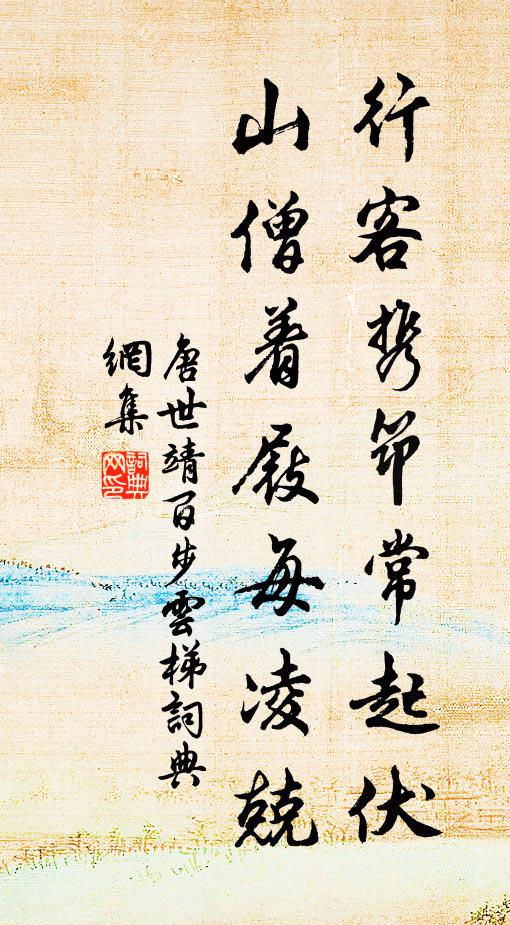 行客携筇常起伏
山僧着屐每凌兢
唐世靖百步雲梯詞典
網集
詞典
网印